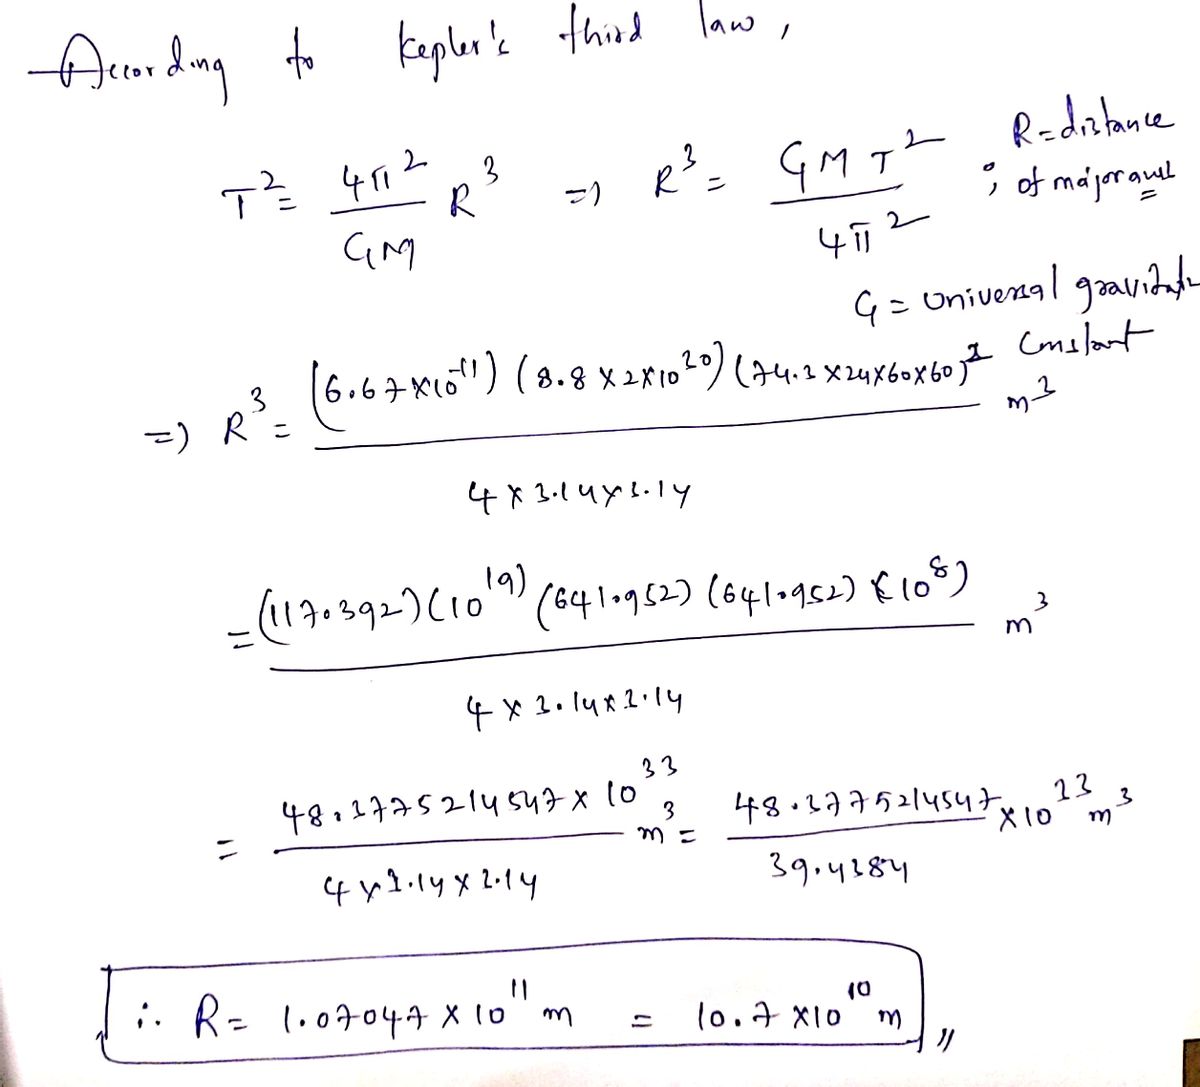 According to Kepler's third law,
T² = 4π²/GM R³ => R³ = GMT²/4π² ; R = distance of major axis
G = Universal gravitational constant
=> R³ = (6.67×10⁻¹¹) (8.8×2×10³⁰) (74.3×24×60×60)² / 4×3.14×3.14 m³
= (117.392)(10¹⁹) (641.952) (641.952) (×10⁸) / 4×3.14×3.14 m³
= 48.3775214547×10³³ / 4×3.14×3.14 m³ = 48.3775214547 / 39.4384 ×10³³ m³
∴ R = 1.07047×10¹¹ m = 10.7×10¹⁰ m,,